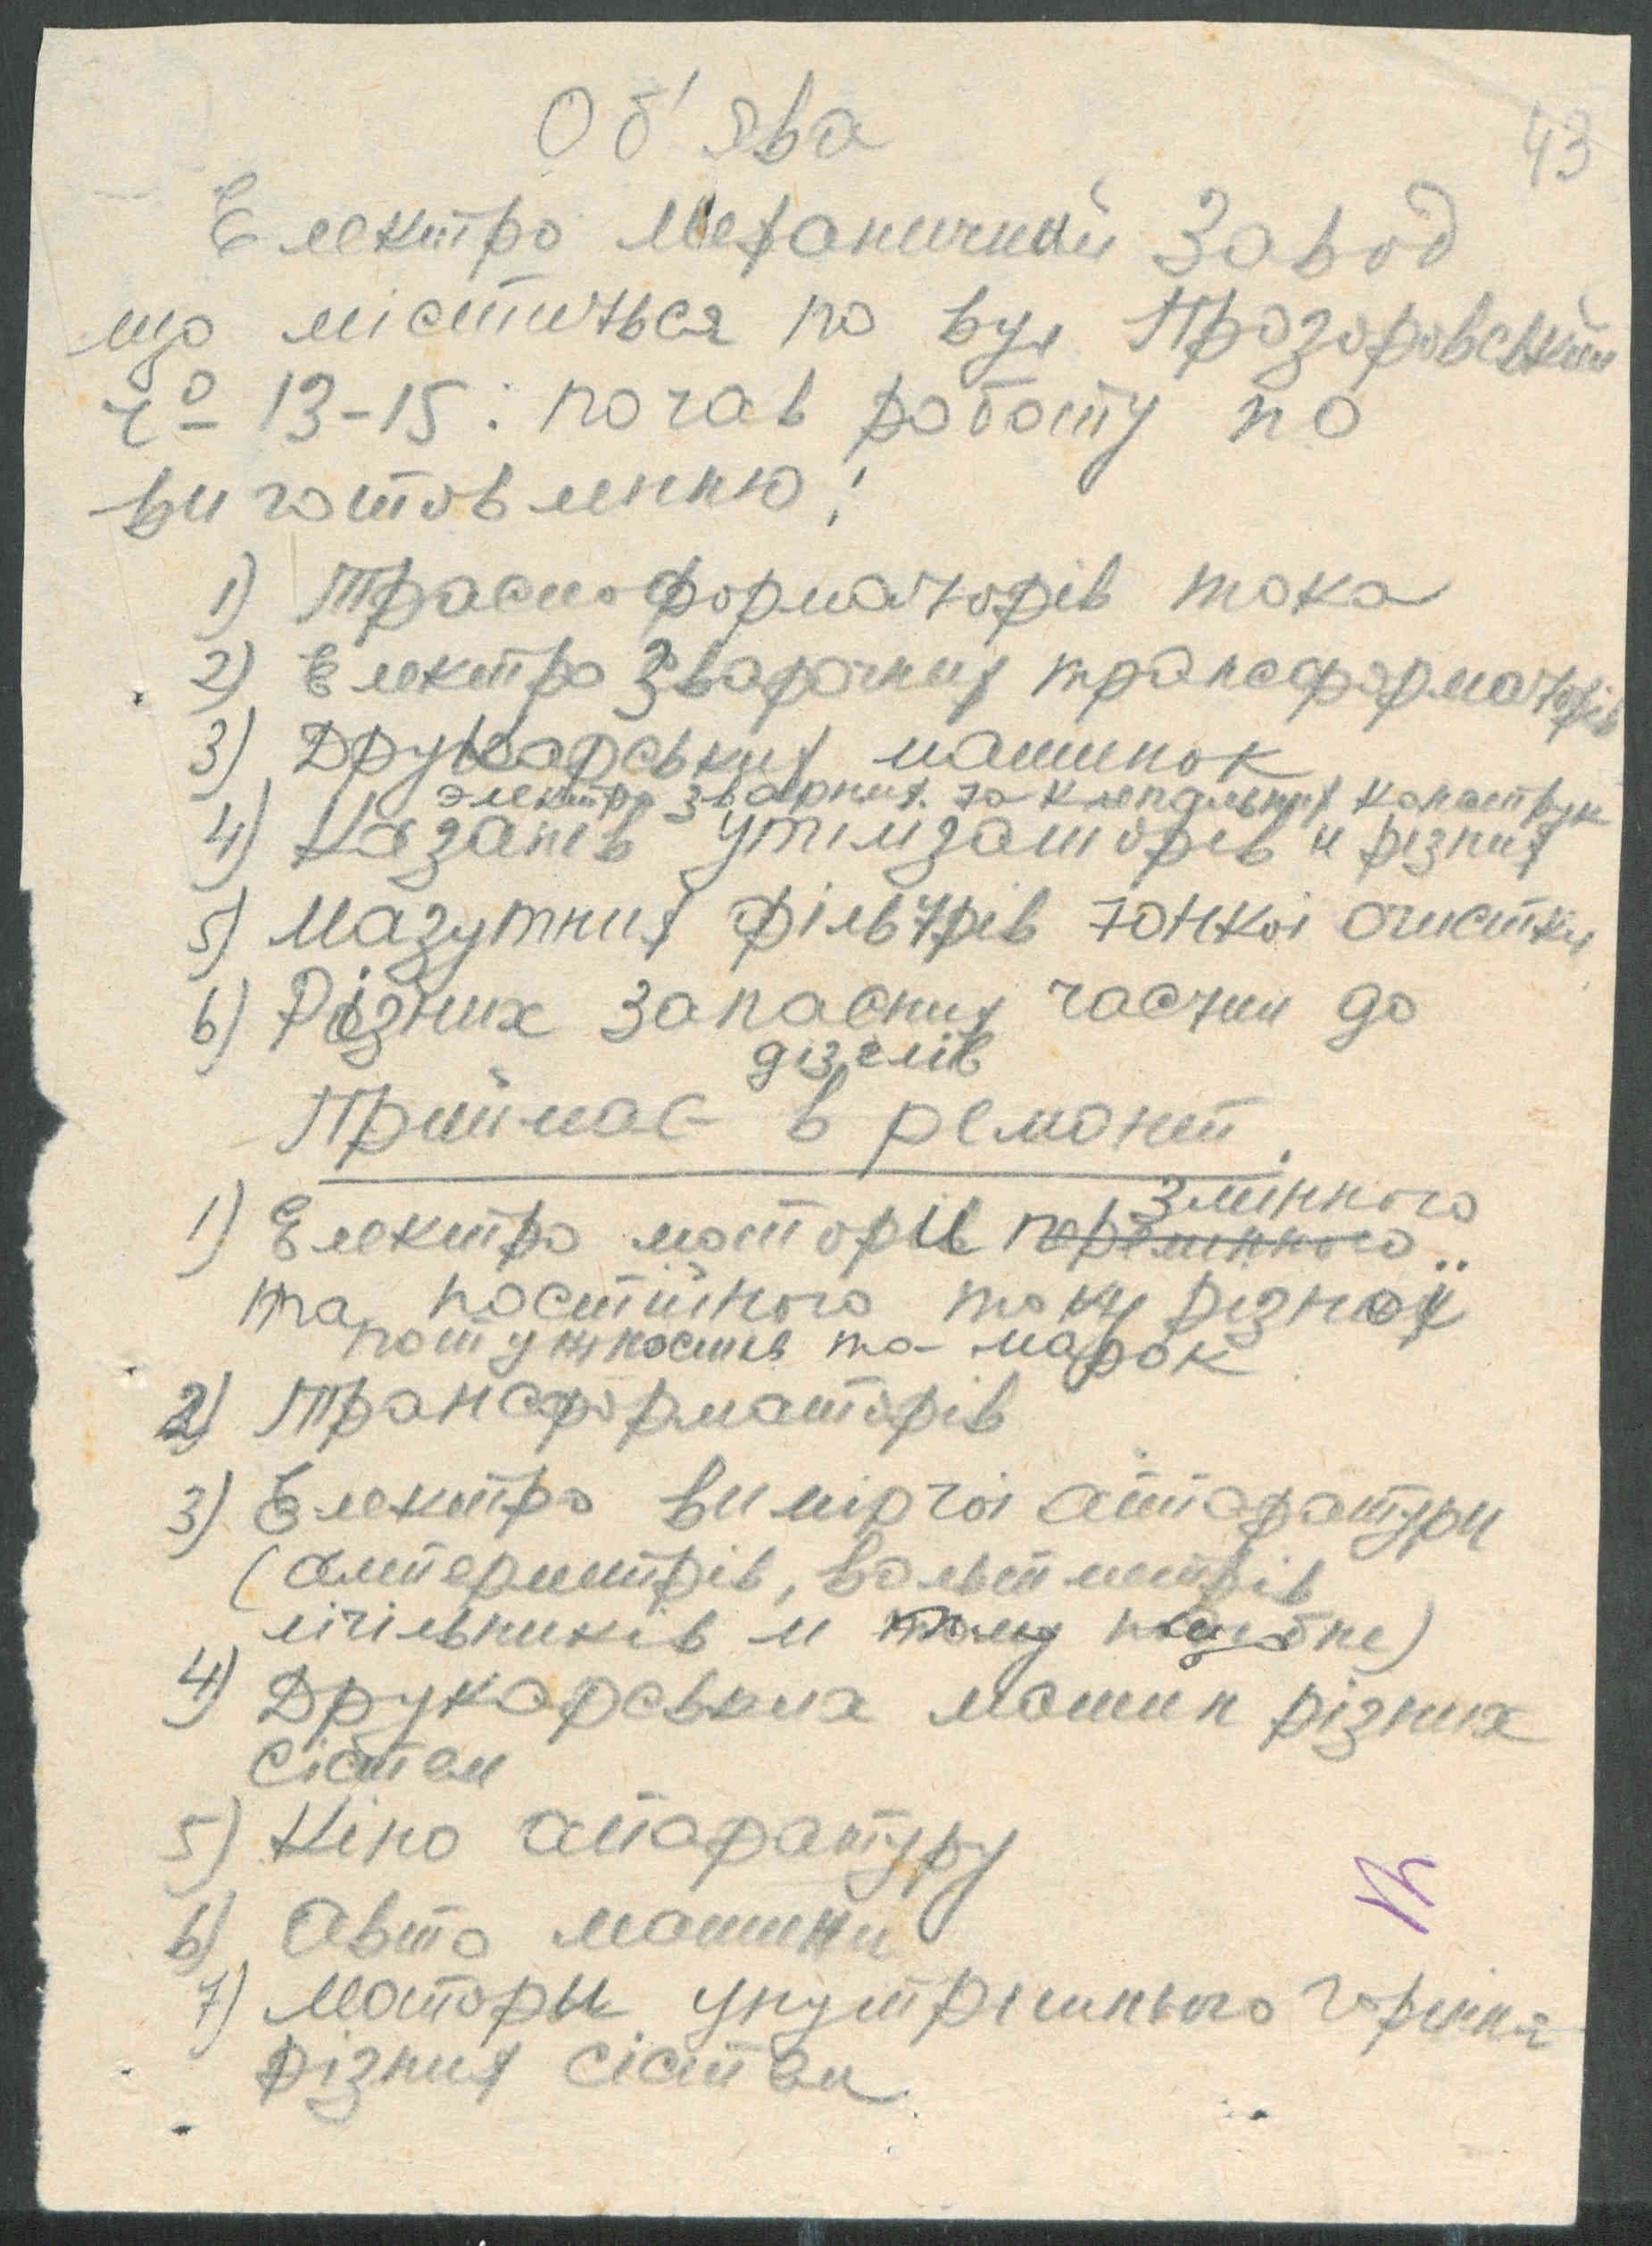 Об'ява
43
Електро Механичний Завод
що міститься по вул Прозоровский
чо 13-15: почав роботу по
виготовленню:
1) Трасмоформаторів тока
2) Електро Зварочних трансформаторів
3) Друкарських машинок
электро зварних та клепальних конструк
4) Казанів утилізаторів и різних
5) Мазутних фільтрів тонкоі очистки
6) Різних запасних частин до
дізелів
Приймає в ремонт.
1) Електро моторів переминного змінного
та постійного току різної
потужностів та марок
2) Трансформаторів
3) Електро вимірчоі аппаратури
(амперметрів, вольтметрів
лічільників и тому подібне)
4) Друкарських машин різних
сістем
5) Кіно апаратуру
6) Авто машини
7) Моторы унутрішнього горіння
різних сістем.